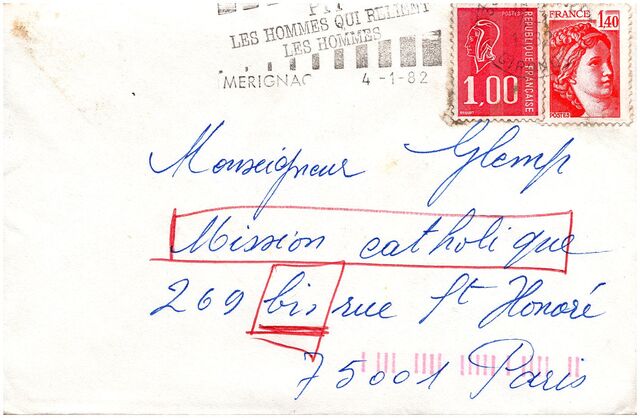 PTT
LES HOMMES QUI RELIENT
LES HOMMES
MERIGNAC 4-1-82
POSTES
1,00
REPUBLIQUE FRANÇAISE
FRANCE
1,40
POSTES
Monseigneur Glemp
Mission catholique
269 bis rue St Honoré
75001 Paris